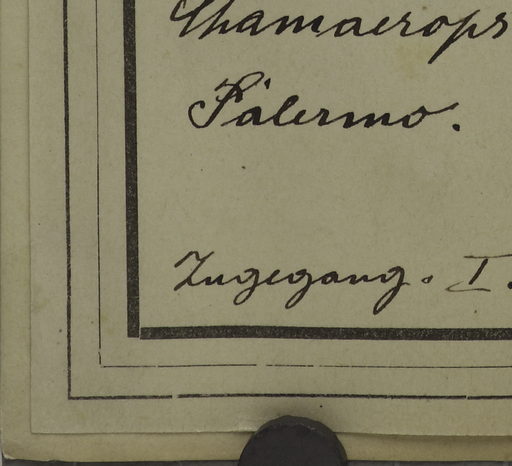 Chamaerops
Palermo.
Zugegang. I.